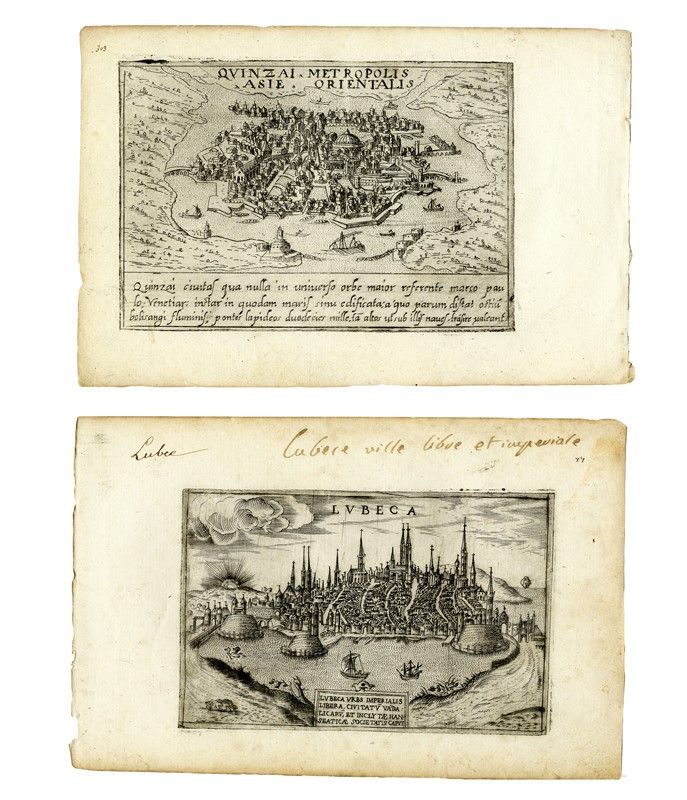 303
QVINZAI . METROPOLIS
. ASIE . ORIENTALIS
Quinzai ciuitas qua nulla in uniuerso orbe maior referente marco pau
lo, Venetiar: instar in quodam maris sinu edificata; a quo parum distat ostiũ
fluminis; pontes lapideos duodecies mille, tã altos ut sub illis naues trãsire ualeant
Lubec
Lubece ville libre et imperiale
LVBECA
LVBECA VRBS IMPERIALIS
LIBERA, CIVITATV̄ VĀDA
LICARV̄, ET INCLYTÆ HAN
SEATICÆ SOCIETATIS CAPVT